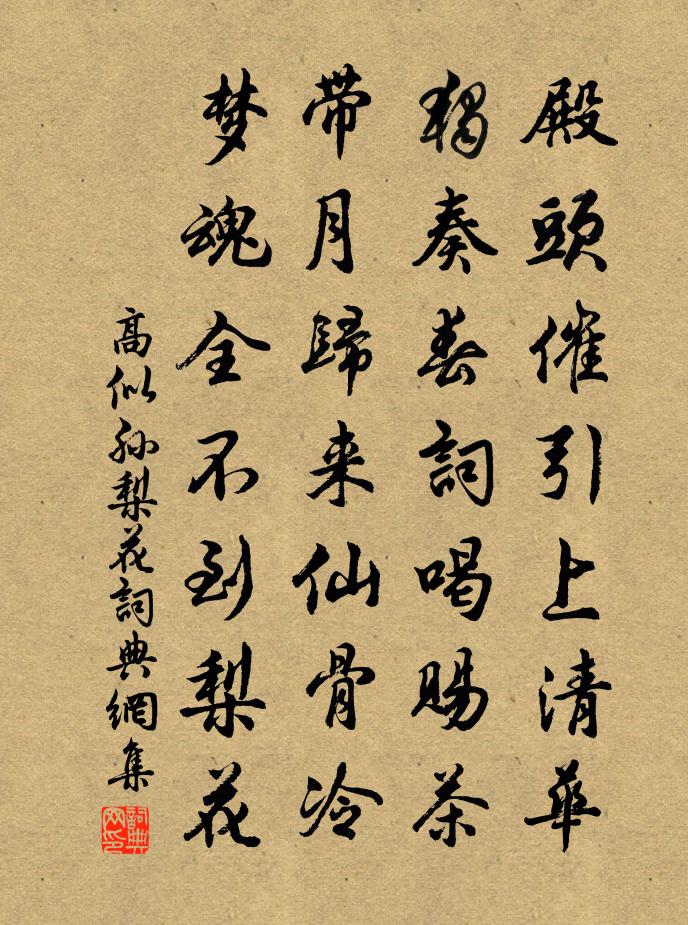 殿頭催引上清華
獨奏春詞喝賜茶
帶月歸来仙骨冷
梦魂全不到梨花
高似孙梨花詞典網集
詞典网印